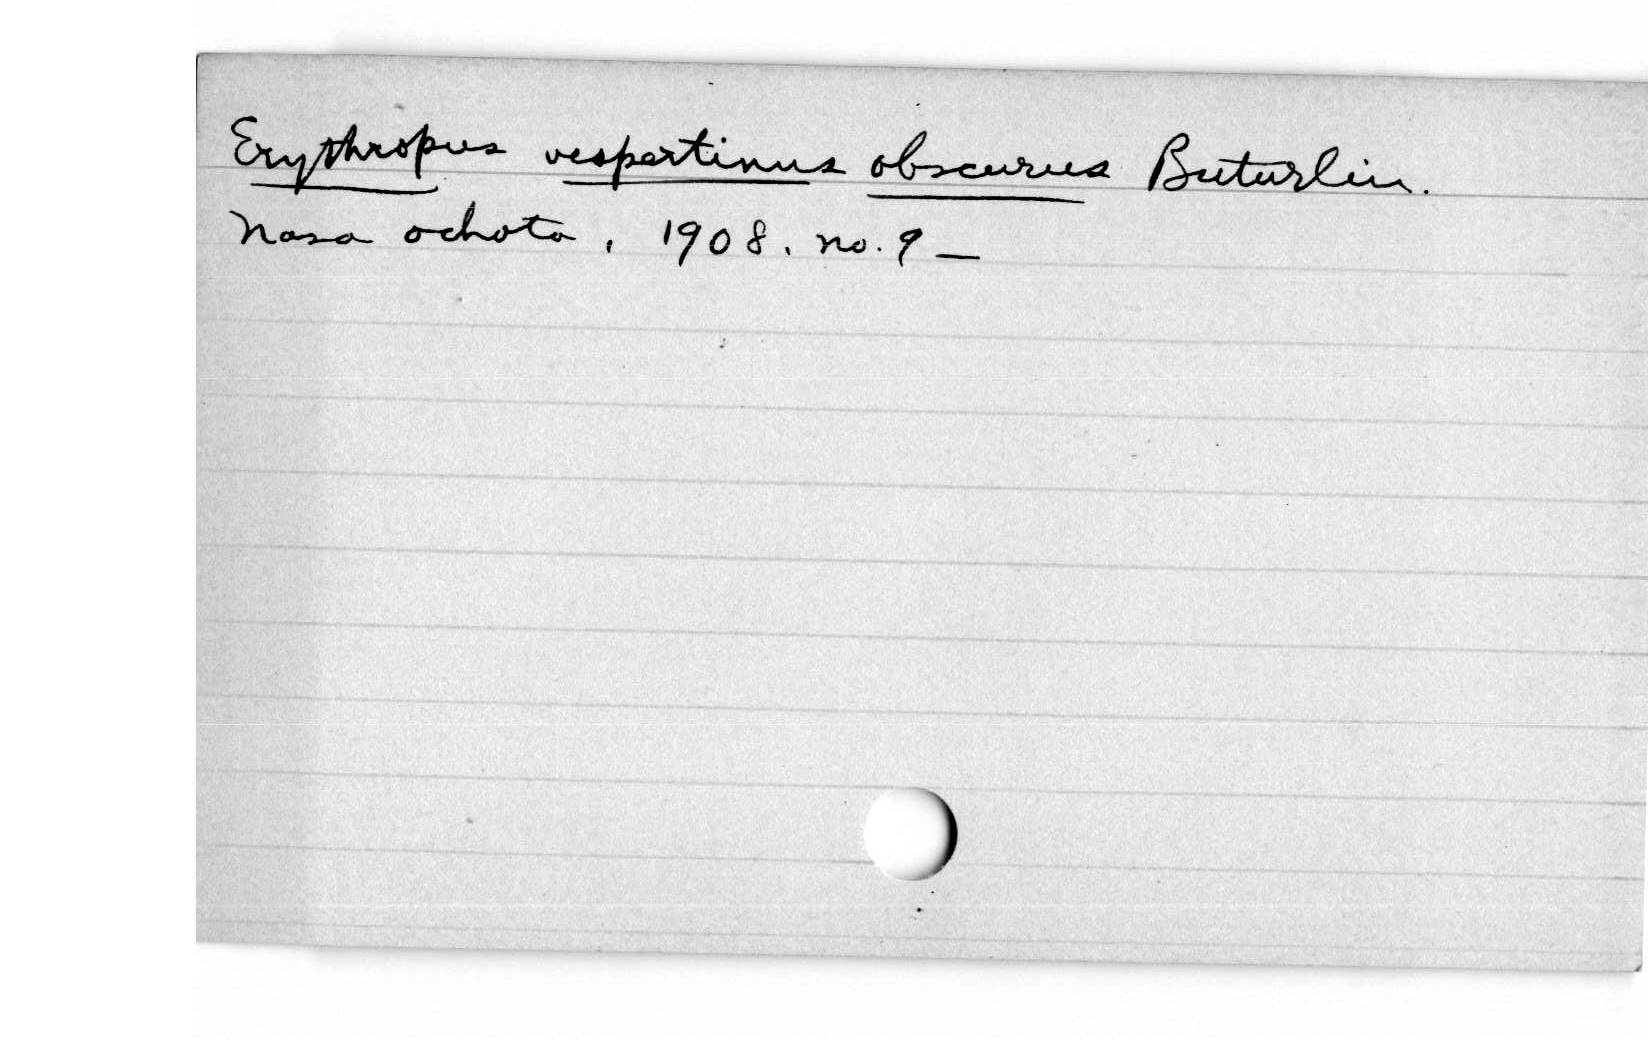 Erythropus vespertinus obscurus Buturlin.
Nasa ochota, 1908. no. 9 —